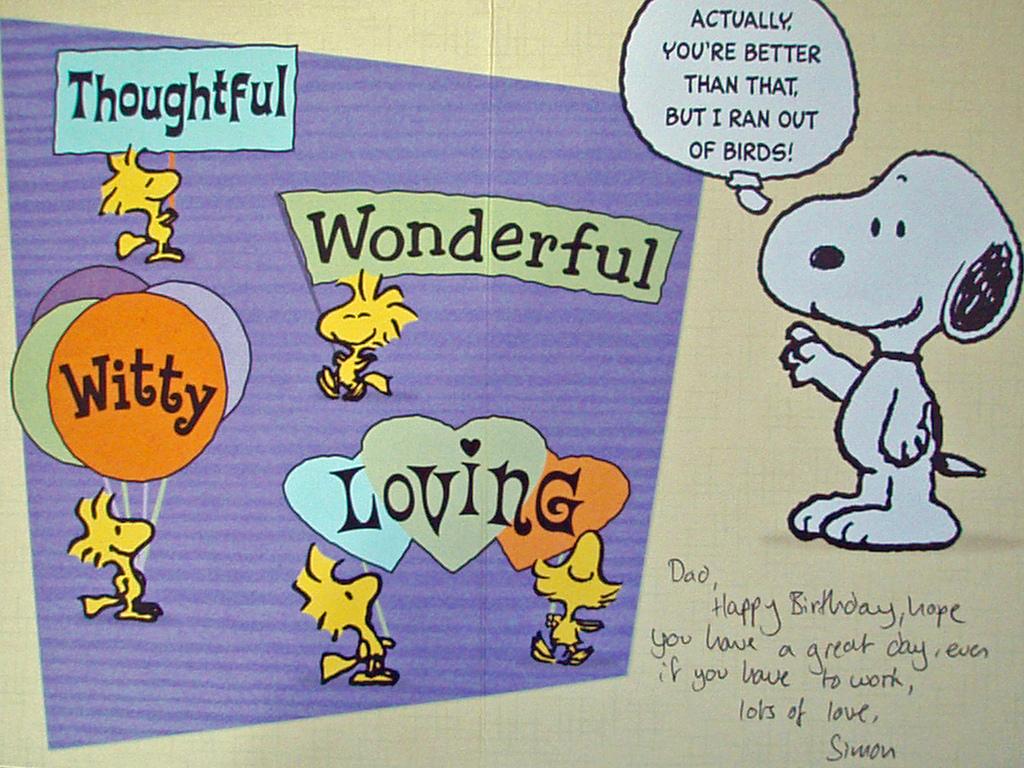 Thoughtful
Wonderful
Witty
Loving
ACTUALLY,
YOU'RE BETTER
THAN THAT,
BUT I RAN OUT
OF BIRDS!
Dad,
Happy Birthday, hope
you have a great day, even
if you have to work,
lots of love,
Simon